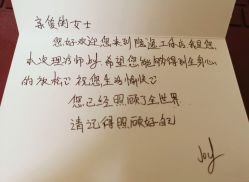 亲爱的女士
您好欢迎您来到 工作 我是您
本次理疗师Joy 希望您能够得到全身心
的放松 祝您生活愉快
您已经照顾了全世界
请记得照顾好自己
Joy